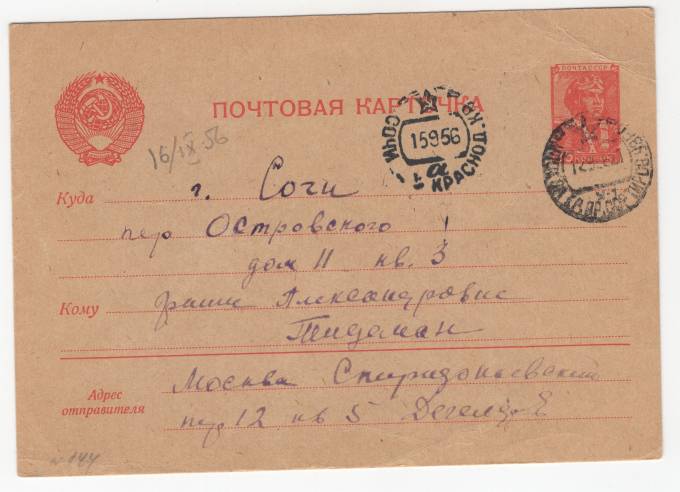 ПОЧТА СССР
ПОЧТОВАЯ КАРТОЧКА
СОЧИ КРАСНОД. КР.
15 9 56
16/IX 56
Куда г. Сочи
пер Островского
дом 11 кв. 3
Кому Александровне
Тидеман
Адрес отправителя Москва Спиридоньевский
пер 12 кв 5